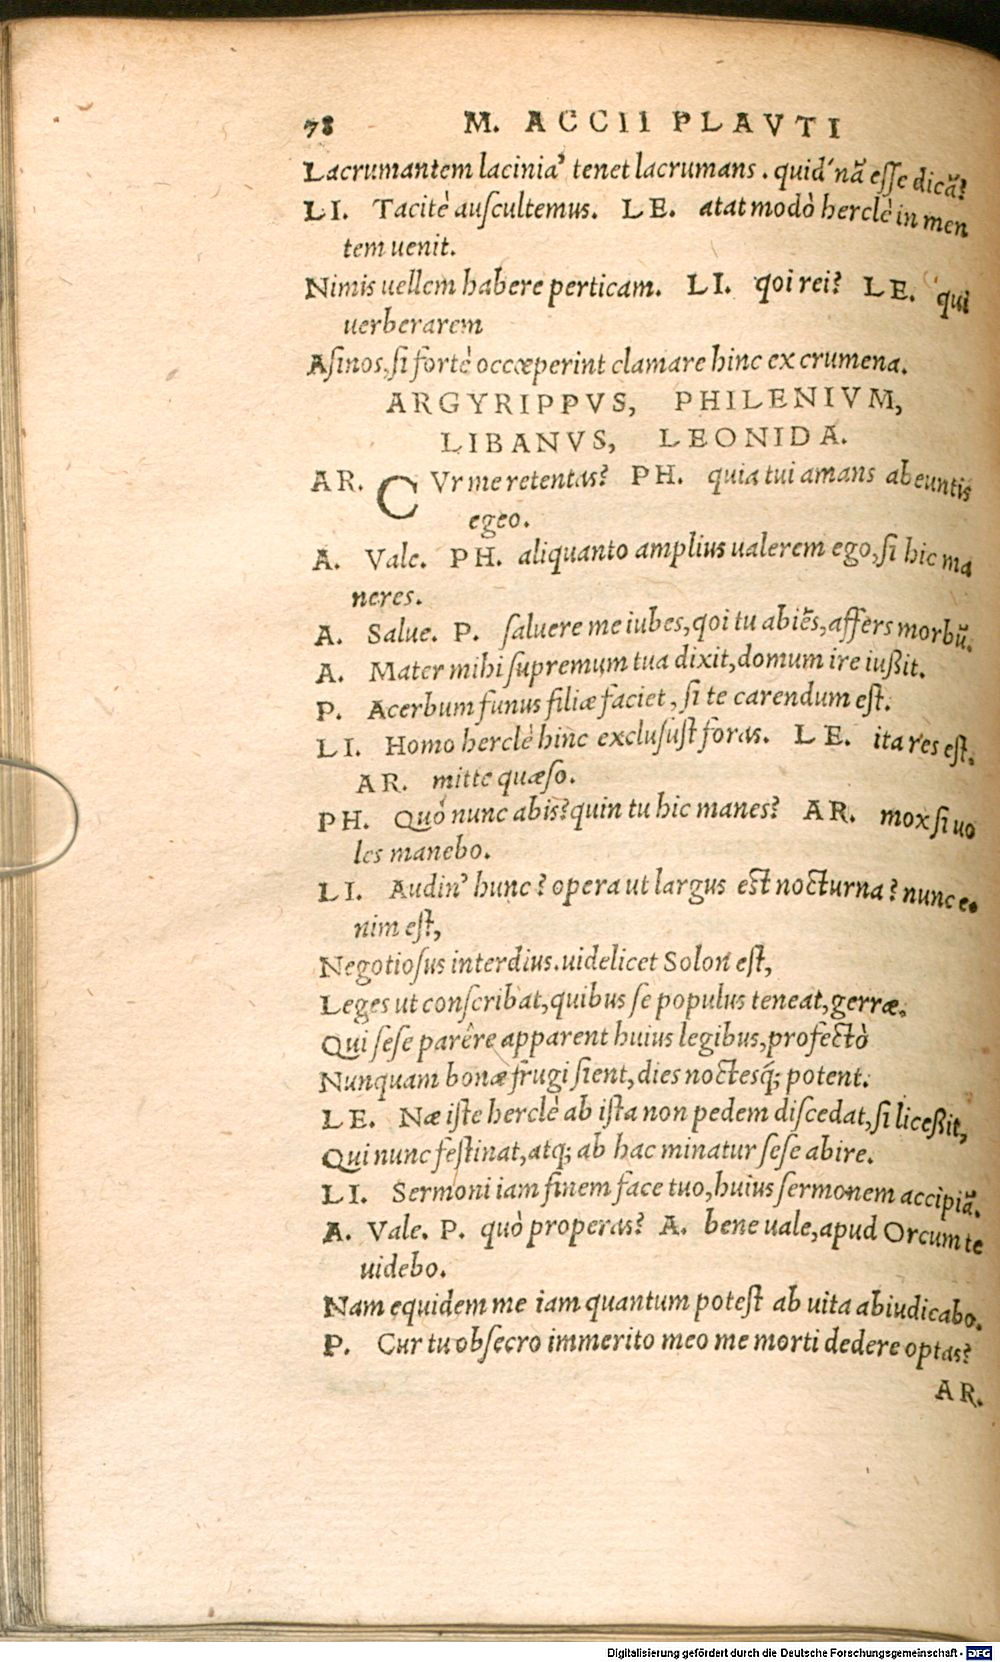 78 M. ACCII PLAVTI
Lacrumantem lacinia' tenet lacrumans. quid' nā esse dicā?
LI. Tacitè auscultemus. LE. atat modò herclè in men
tem uenit.
Nimis uellem habere perticam. LI. qoi rei? LE. qui
uerberarem
Asinos, si fortè occœperint clamare hinc ex crumena.
ARGYRIPPVS, PHILENIVM,
LIBANVS, LEONIDA.
AR. CVr me retentas? PH. quia tui amans abeuntis
egeo.
A. Vale. PH. aliquanto amplius ualerem ego, si hic ma
neres.
A. Salue. P. saluere me iubes, qoi tu abiēs, affers morbū.
A. Mater mihi supremum tua dixit, domum ire iußit.
P. Acerbum funus filiæ faciet, si te carendum est.
LI. Homo herclè hinc exclusust foras. LE. ita res est.
AR. mitte quæso.
PH. Quò nunc abis? quin tu hic manes? AR. mox si uo
les manebo.
LI. Audin' hunc? opera ut largus est nocturna? nunc e-
nim est,
Negotiosus interdius. uidelicet Solon est,
Leges ut conscribat, quibus se populus teneat, gerræ.
Qui sese parêre apparent huius legibus, profectò
Nunquam bonæ frugi sient, dies noctesq́; potent.
LE. Næ iste herclè ab ista non pedem discedat, si liceßit,
Qui nunc festinat, atq; ab hac minatur sese abire.
LI. Sermoni iam finem face tuo, huius sermonem accipiā.
A. Vale. P. quò properas? A. bene uale, apud Orcum te
uidebo.
Nam equidem me iam quantum potest ab uita abiudicabo.
P. Cur tu obsecro immerito meo me morti dedere optas?
AR.
Digitalisierung gefördert durch die Deutsche Forschungsgemeinschaft - DFG